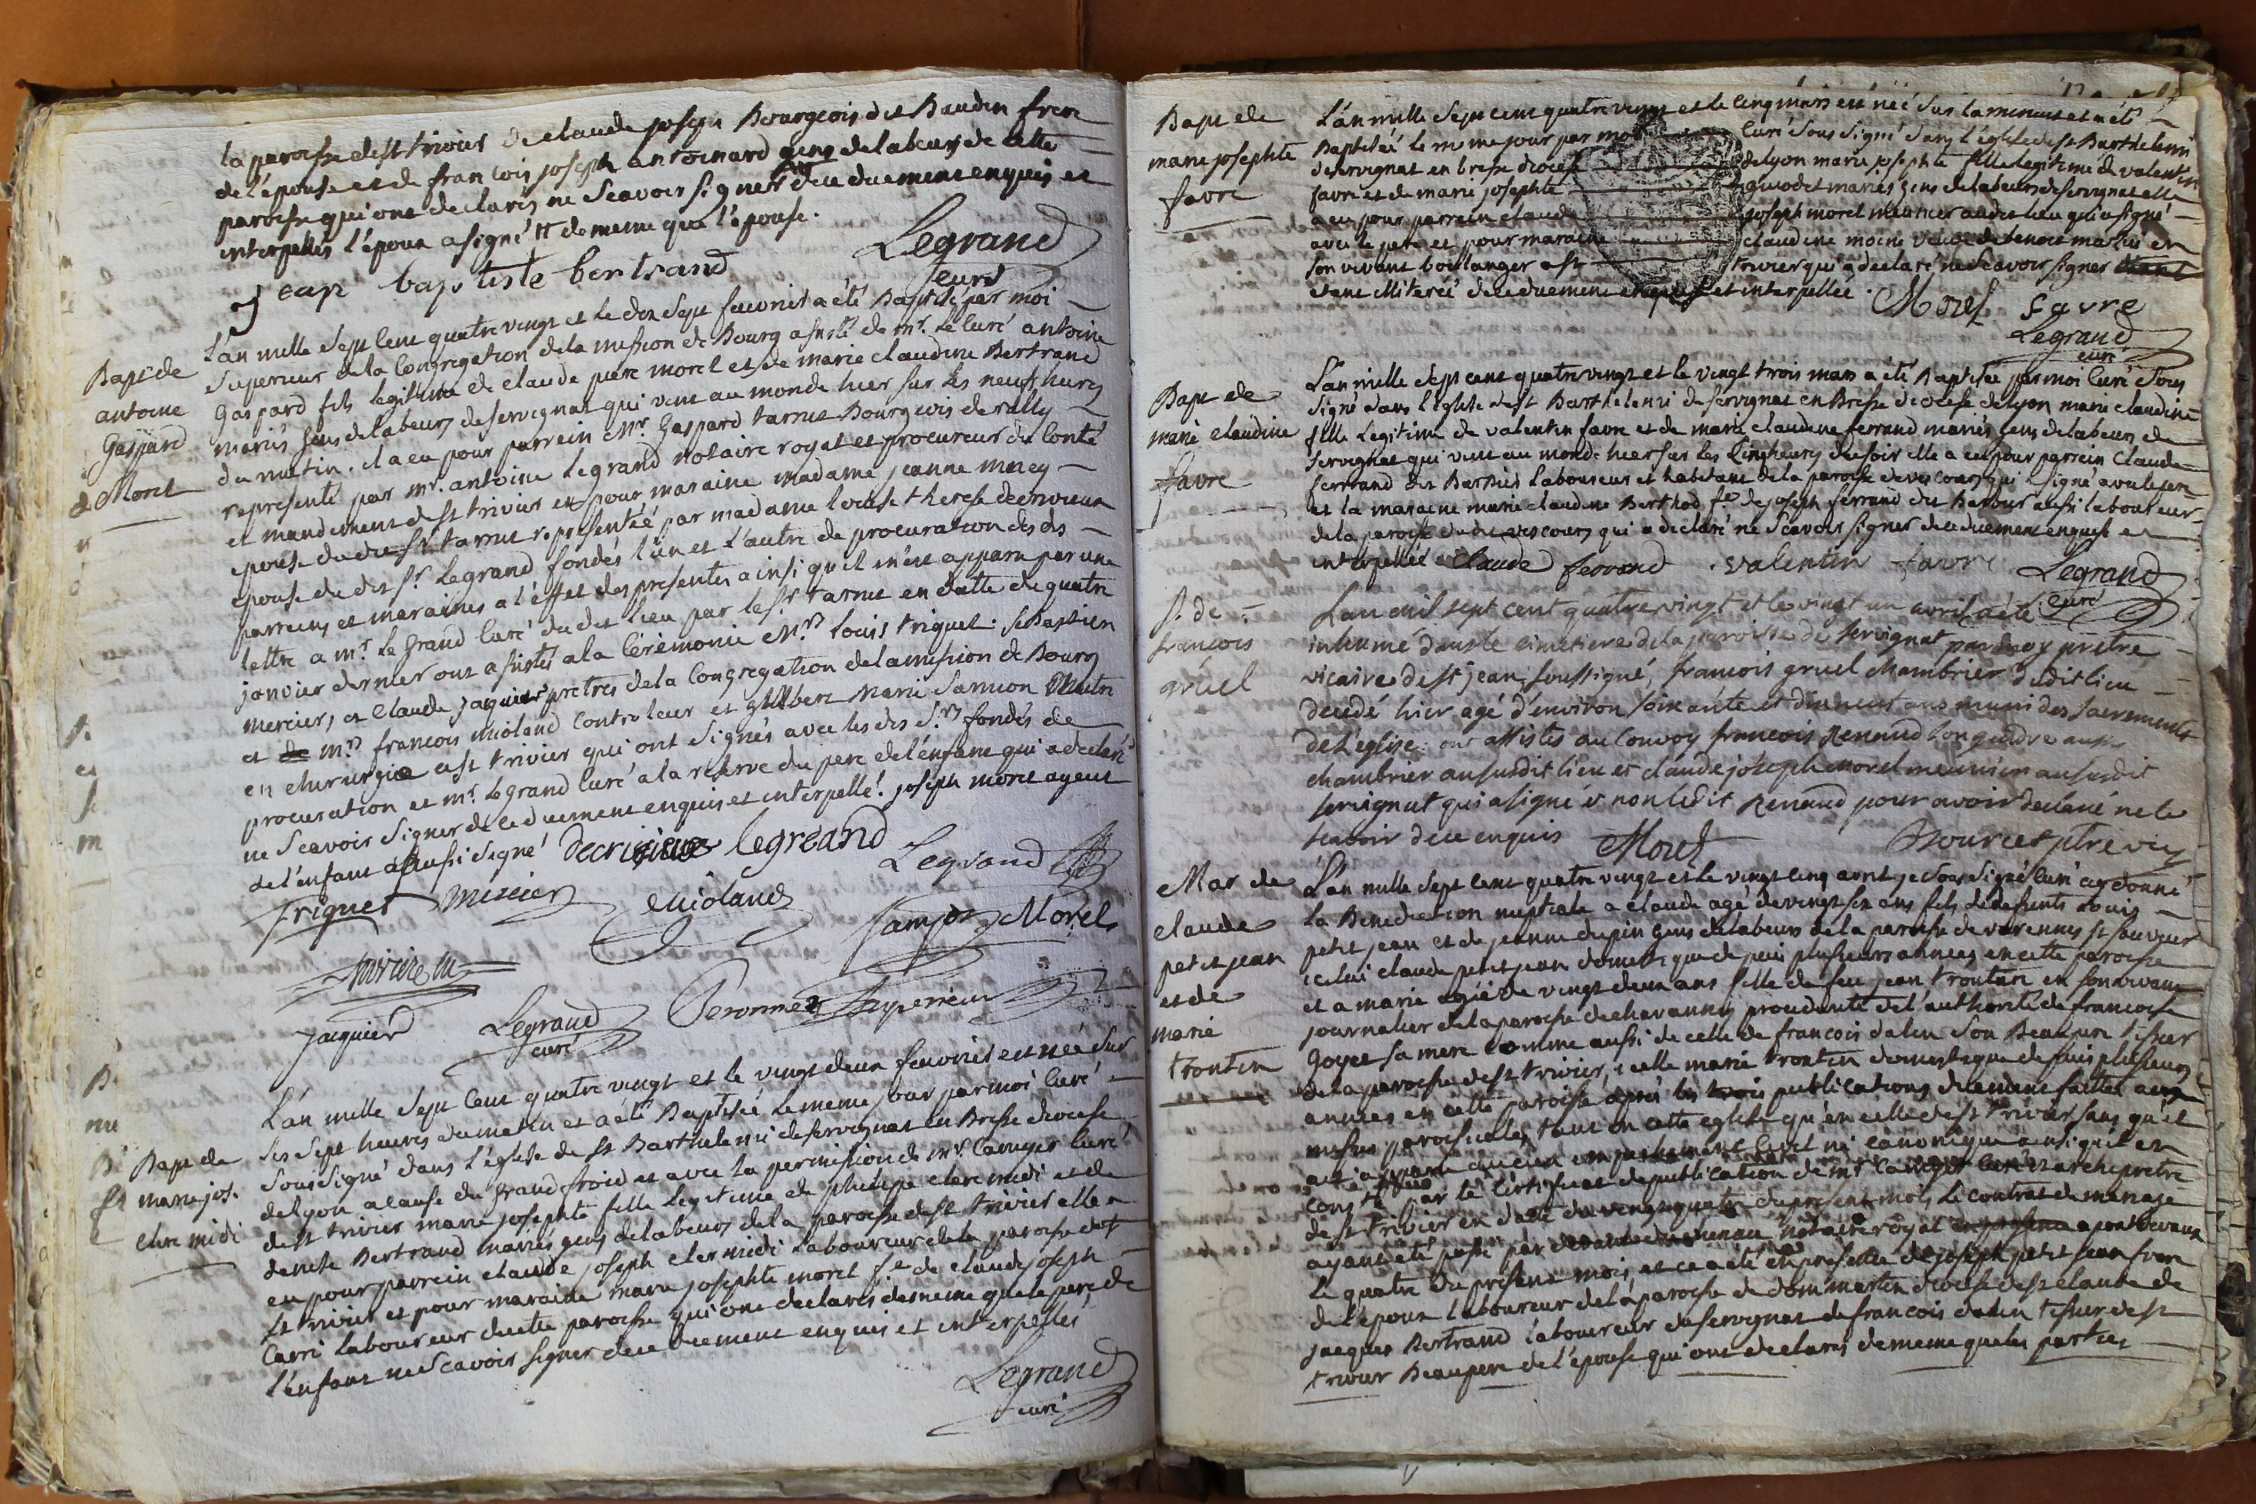 la paroisse de st trivier de claude joseph Bourgeois dit Baudin frere
de l'épouse et de francois joseph antoinard gens de labeurs de cette
paroisse qui ont déclarés ne Scavoir signer de ce duement enquis et
interpellés l'époux a signé et de meme que l'épouse.
jean baptiste bertrand Legrand
curé
Bapt de
antoine
Gaspard
Morel
L'an mille Sept cent quatre vingt et le dix Sept feuvrier a été Baptisé par moi
Superieur de la Congregation de la mission de Bourg assisté de mr. le curé antoine
Gaspard fils legitime de claude morel et de marie claudine Bertrand
mariés gens de labeurs de servignat qui vint au monde hier sur les neuf heures
du matin. il a eu pour parrein mr. Gaspard tarrut Bourgeois de
representé par mr. antoine Legrand notaire royal et procureur du Conté
et mandement de st trivier et pour maraine madame jeanne
epouse du dit sr. tarrut representée par madame louise therese
epouse du dit sr. Legrand fondés l'un et l'autre de procuration des dts
parreins et maraines a l'effet des presentes ainsi qu'il m'est apparu par une
lettre a mr. le grand curé du dit lieu par le sr. tarrut en datte de quatre
janvier dernier ont assistés a la Cérémonie mrs. louis triquet. Sebastien
mercier, et claude jacquier pretres de la Congregation de la mission de Bourg
et mrs francois mioland Controleur et Gilbert marie Samion maitre
en chirurgie a st trivier qui ont signés avec les dts Srs fondés de
procuration et mr. Legrand curé a la reserve du pere de l'enfant qui a declaré
ne Scavoir signer de ce duement enquis et interpellé. joseph morel ayeul
de l'enfant a aussi signé legreand Legrand
triquet mercier mioland Morel
jacquier Legrand Superieur
curé
Bapt de
marie jos.
clere midi
L'an mille Sept Cent quatre vingt et le vingt deux feuvrier est née sur
les Sept heures du matin et a été Baptisée le meme jour par moi Curé
Soussigné dans l'église de st Barthelemi de servignat en Bresse diocese
de lyon a cause du grand froid et avec la permission de mr. curé
de st trivier marie josephte fille legitime de philipe clere midi et de
denise Bertrand mariés gens de labeurs de la paroisse de st trivier elle a
eu pour parrein claude joseph clermidi Laboureur de la paroisse de
st trivier et pour maraine marie josephte morel fe. de claude joseph
Carri laboureur de cette paroisse qui ont declarés de meme que le pere de
l'enfant ne Scavoir signer de ce duement enquis et interpellés
Legrand
curé
Bapt de
marie josephte
favre
L'an mille Sept cent quatre vingt et le cinq mars est née sur la minuit et a été
Baptisée le meme jour par moi Curé sous signé dans l'église de st Barthelemi
de servignat en bresse diocese de lyon marie josephte fille legitime de valentin
favre et de marie josephte mariés gens de labeurs de servignat elle
a eu pour parrein claude joseph morel meunier audit lieu qui a signé
avec le pere et pour maraine claudine moine veuve de benoit en
son vivant boulanger a st trivier qui a declaré ne Scavoir signer
etant illiterée de ce duement enquise et interpellée.
Morel favre
Legrand
curé
Bapt de
marie claudine
favre
L'an mille Sept cent quatre vingt et le vingt trois mars a été Baptisée par moi Curé Sous
Signé dans l'église de st Barthelemi de servignat en Bresse diocese de lyon marie claudine
fille Legitime de valentin favre et de marie claudine ferrand mariés gens de labeurs de
servignat qui vint au monde hier sur les cinq heures du soir elle a eu pour parrein claude
ferrand dit laboureur et habitant de la paroisse de vescours qui a signé avec le pere
et la maraine marie claudine Berthod fe. de joseph ferrand dit aussi laboureur
de la paroisse dudit vescours qui a declaré ne Scavoir signer de ce duement enquise et
interpellée claude ferrand . valentin favre Legrand
curé
S. de
francois
gruel
L'an mil sept cent quatre vingt et le vingt un avril a été
inhumé dans le cimetiere de la paroisse de Servignat par moy prêtre
vicaire de st jean, soussigné, francois gruel chambrier dudit lieu
decedé hier agé d'environ soixante et dix neuf ans muni des sacrements
de l'eglise. ont assistés au Convoy francois Renaud aussi
chambrier au susdit lieu et claude joseph morel meunier au susdit
servignat qui a signé et non ledit Renaud pour avoir declaré ne le
scavoir de ce enquis Morel ptre vic
Mar de
claude
petit jean
et de
marie
trontin
L'an mille Sept cent quatre vingt et le vingt cinq avril je Sous Signé Curé ai donné
la Benediction nuptiale a claude agé de vingt six ans fils de defunts Louis
petit jean et de jeanne dupin gens de labeurs de la paroisse de varennes st Sauveur
icelui claude petit jean domestique depuis plusieurs années en cette paroisse
et a marie agée de vingt deux ans fille de feu jean trontin en son vivant
journalier de la paroisse de chavannes procedante de l'authorité de francoise
Goyet Sa mere comme aussi de celle de francois dalin Son Beaupere tissier
de la paroisse de st trivier, icelle marie trontin domestique depuis plusieurs
années en cette paroisse après les trois publications duement faittes aux
messes paroissiales tant en cette eglise qu'en celle de st trivier sans qu'il
aucun empechement Civil ni canonique ainsi qu'il en
par le Certificat de publication de mr. Curé et archipretre
de st trivier en datte du vingt quatre du present mois, le contrat de mariage
ayant été passé par devant notaire royal a pont devaux
le quatre du présent mois, et ce a été en presence de joseph petit jean frere
de l'époux laboureur de la paroisse de dommartin diocese de st claude de
jacques Bertrand laboureur de servignat de francois dalin tissier de st
trivier Beaupere de l'épouse qui ont declarés de meme que les parties